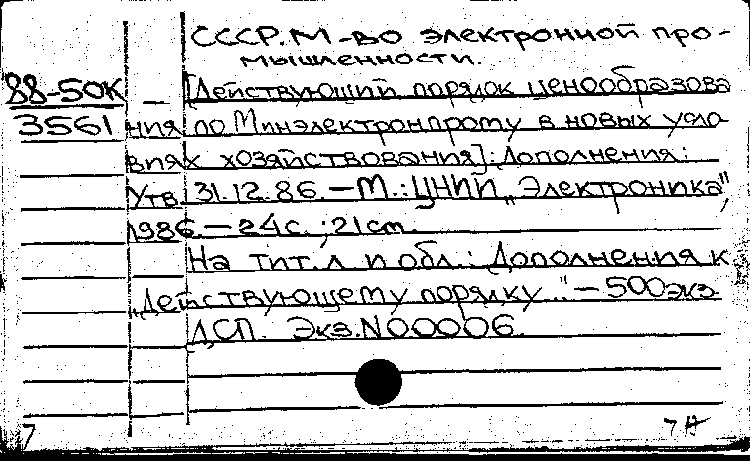 СССР. М-во электронной про-
мышленности.
88-50К
3561
[Действующий порядок ценообразова
ния по Минэлектронпрому в новых усло
виях хозяйствования]: Дополнения:
Утв. 31.12.86. – М.: ЦНИИ „Электроника",
1986. – 24с. ; 21см.
На тит. л. и обл.: Дополнения к
„Действующему порядку..." – 500 экз.
ДСП. Экз. N00006.
7